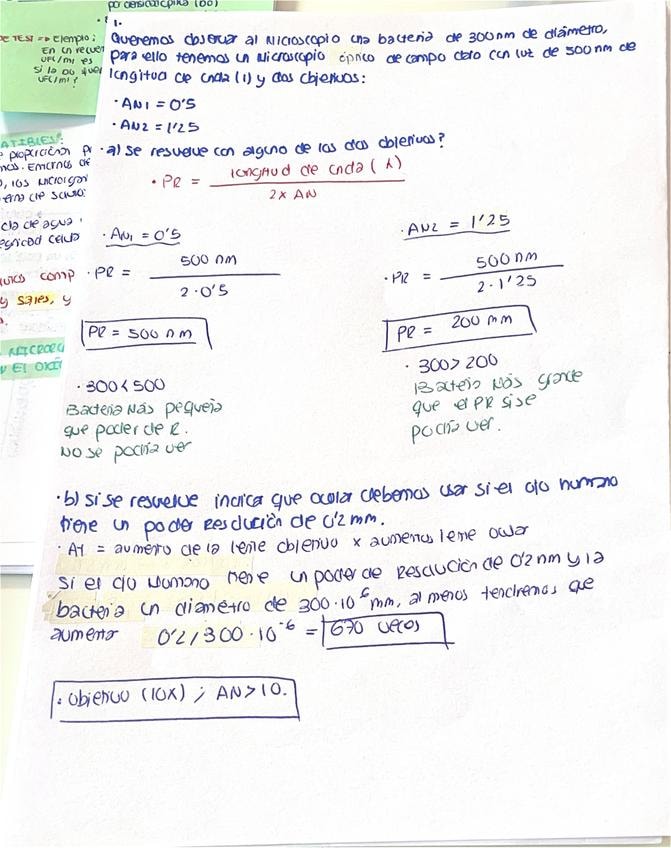 por densidad óptica (DO)
DE TEST => Ejemplo:
En un recuen
UFC/ml es
Si la DO
UFC/ml?
ATIBLES:
e proporción
mos. Enermos de
o, los microor
ema de
cla de agua
egridad celula
comp
y sales, y
MICROOR
Y EL OXÍ
1.
Queremos observar al Microscopio una bacteria de 300nm de diámetro,
para ello tenemos un Microscopio óptico de campo claro con luz de 500nm de
longitud de onda (λ) y dos objetivos:
· AN1 = 0'5
· AN2 = 1'25
· a) Se resuelve con alguno de los dos objetivos?
· PR = longitud de onda (λ)
2 x AN
· AN1 = 0'5
· PR = 500 nm
2 · 0'5
PR = 500 nm
· 300 < 500
Bacteria Más pequeña
que poder de R.
NO se podría ver
· AN2 = 1'25
· PR = 500nm
2 · 1'25
PR = 200 nm
· 300 > 200
Bacteria Más grande
que el PR si se
podría ver.
· b) Si se resuelve indica que ocular debemos usar si el ojo humano
tiene un poder Resolución de 0'2 mm.
· AT = aumento de la lente objetivo x aumentos lente ocular
Si el ojo Humano tiene un poder de Resolución de 0'2 nm y la
bacteria un diámetro de 300·10⁻⁶ mm, al menos tendremos que
aumentar 0'2 / 300 · 10⁻⁶ = 670 veces
· Objetivo (10X) ; AN > 10.